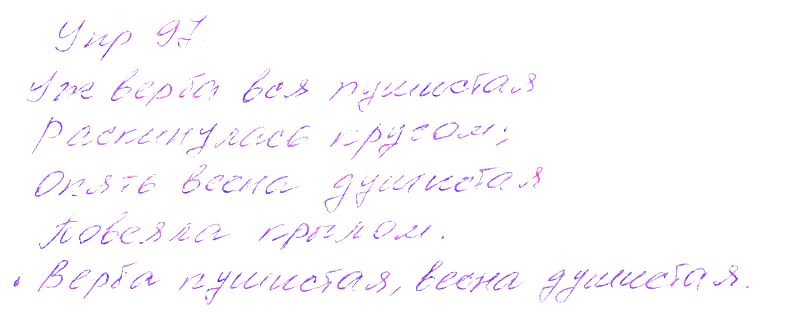 Упр 97
Уж верба вся пушистая
Раскинулась кругом;
Опять весна душистая
Повеяла крылом.
. Верба пушистая, весна душистая.